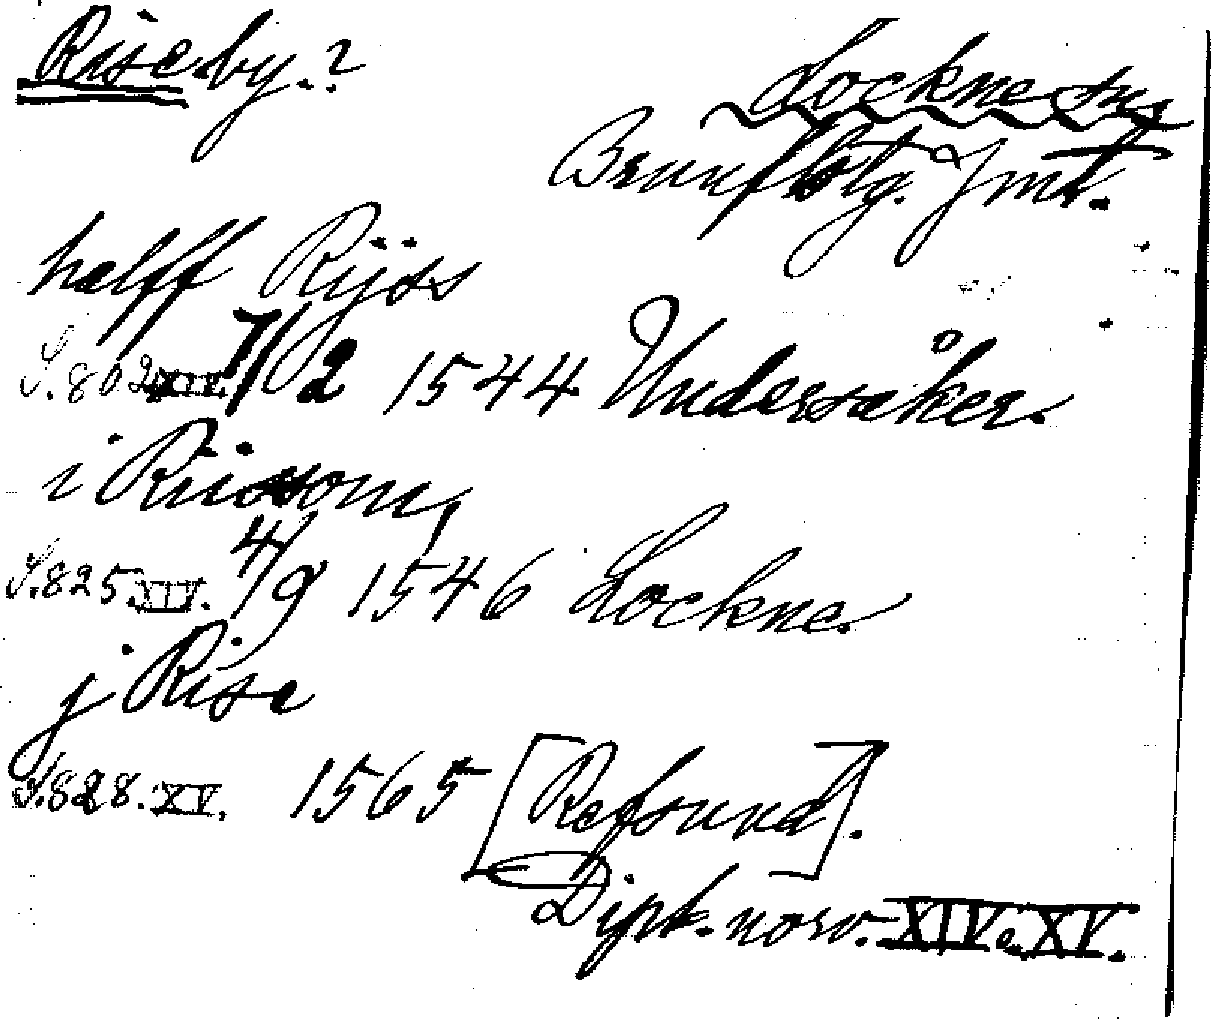 Riseby.?
Lockne sn,
Brunflo tg. Jmt.
halff Rijss
S.802 XIV. 7/2 1544 Undersåker.
i Riisom,
S.825 XIV. 4/9 1546 Lockne.
j Risa
S.828. XV. 1565 [Refsund].
Dipl. norv. XIV o. XV.